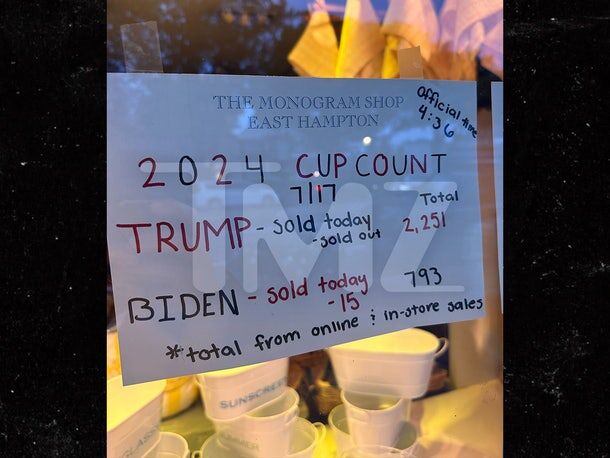 THE MONOGRAM SHOP
EAST HAMPTON
Official time
4:36
2024 CUP COUNT
7/17
Total
TRUMP - sold today 2,251
- sold out
BIDEN - sold today 793
- 15
*total from online & in-store sales
TMZ
SUNSCREEN
SUMMER
GLASSES